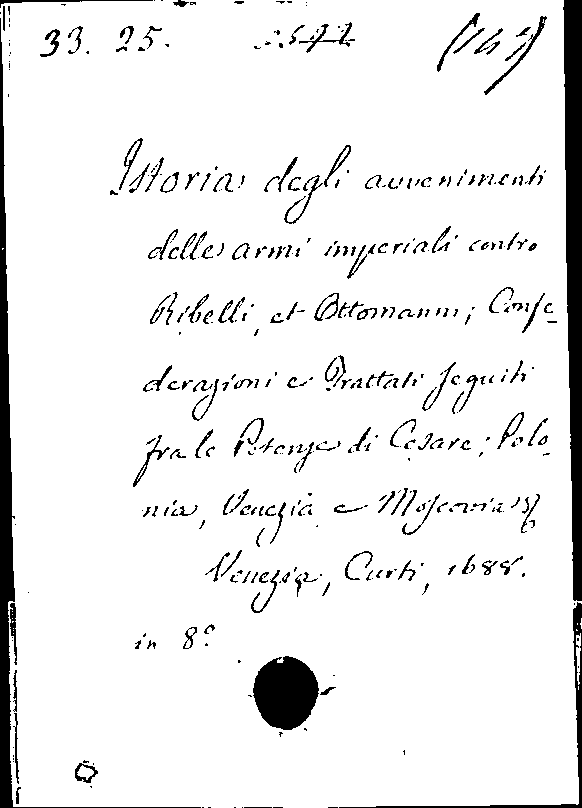 33. 25.
Istoria degli avvenimenti
delle armi imperiali contro
Ribelli, et Ottomanni; Confe-
derazioni e Trattati seguiti
fra le Potenze di Cesare; Polo-
nia, Venezia e Moscovia
Venezia, Curti, 1688.
in 8º